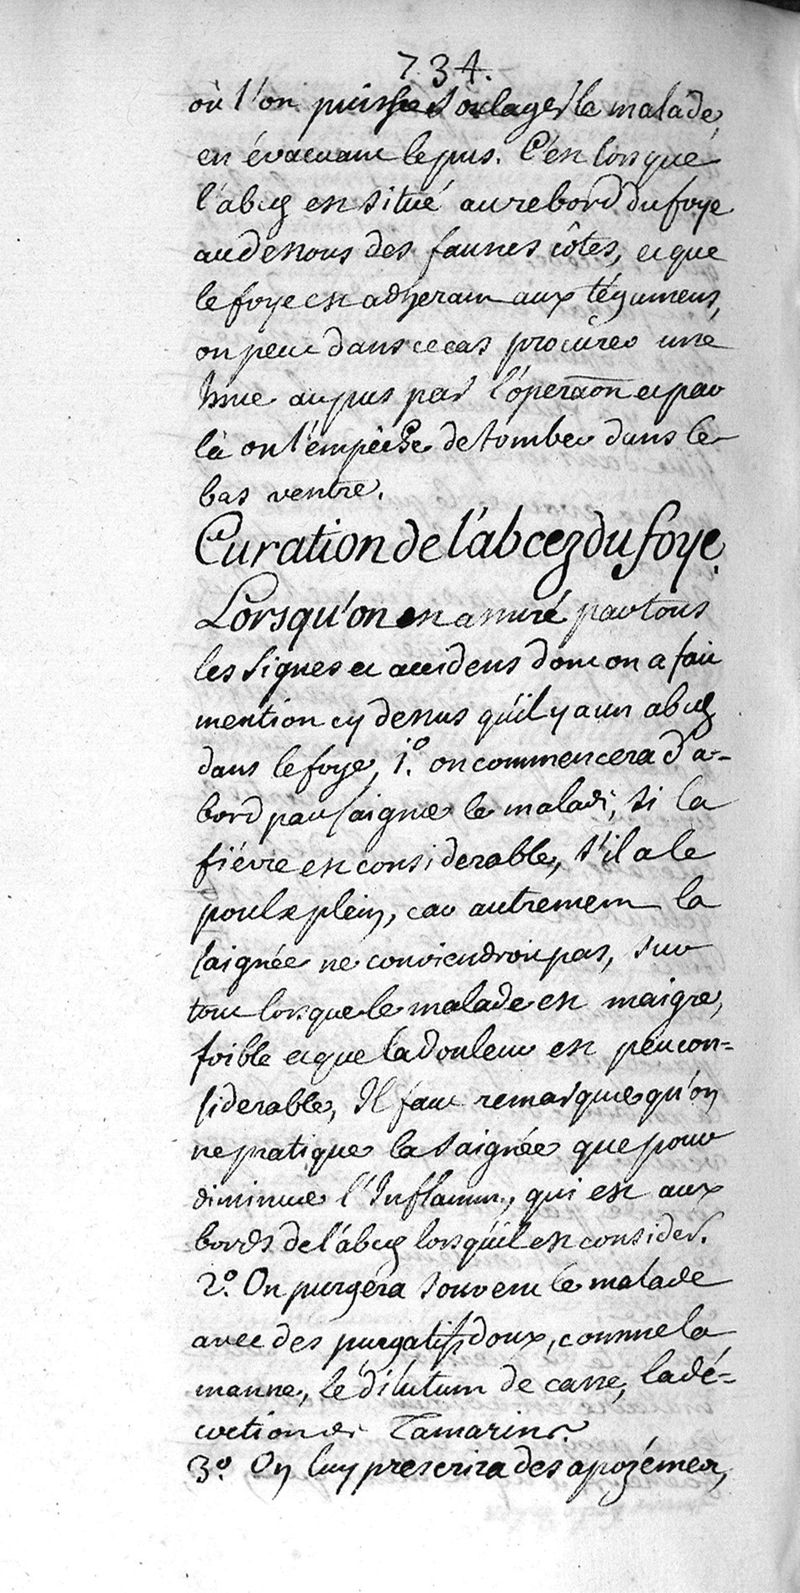 734.
où l'on puisse soulager le malade,
en évacuant le pus. C'est lorsque
l'abcez est situé au rebord du foye
au dessous des fausses côtes, et que
le foye est adherant aux tégumens,
on peut dans ce cas procurer une
issue au pus par l'opéraôn et par
là on l'empêche de tomber dans le
bas ventre.
Curation de l'abcez du foye.
Lorsqu'on est assuré par tous
les signes et accidens dont on a fait
mention cy dessus qu'il y a un abcez
dans le foye, 1.° on commencera d'a-
bord par saigner le malade, si la
fiévre est considerable, s'il a le
poulx plein, car autrement la
saignée ne conviendroit pas, sur
tout lorsque le malade est maigre,
foible et que la douleur est peu con=
siderable, Il faut remarquer qu'on
ne pratique la saignée que pour
diminuer l'Inflamm., qui est aux
bords de l'abcez lorsqu'il est consider.
2.° On purgera souvent le malade
avec des purgatifs doux, comme la
manne, le dilutum de casse, la dé=
coction de Tamarins.
3.° On luy prescrira des apozémes,